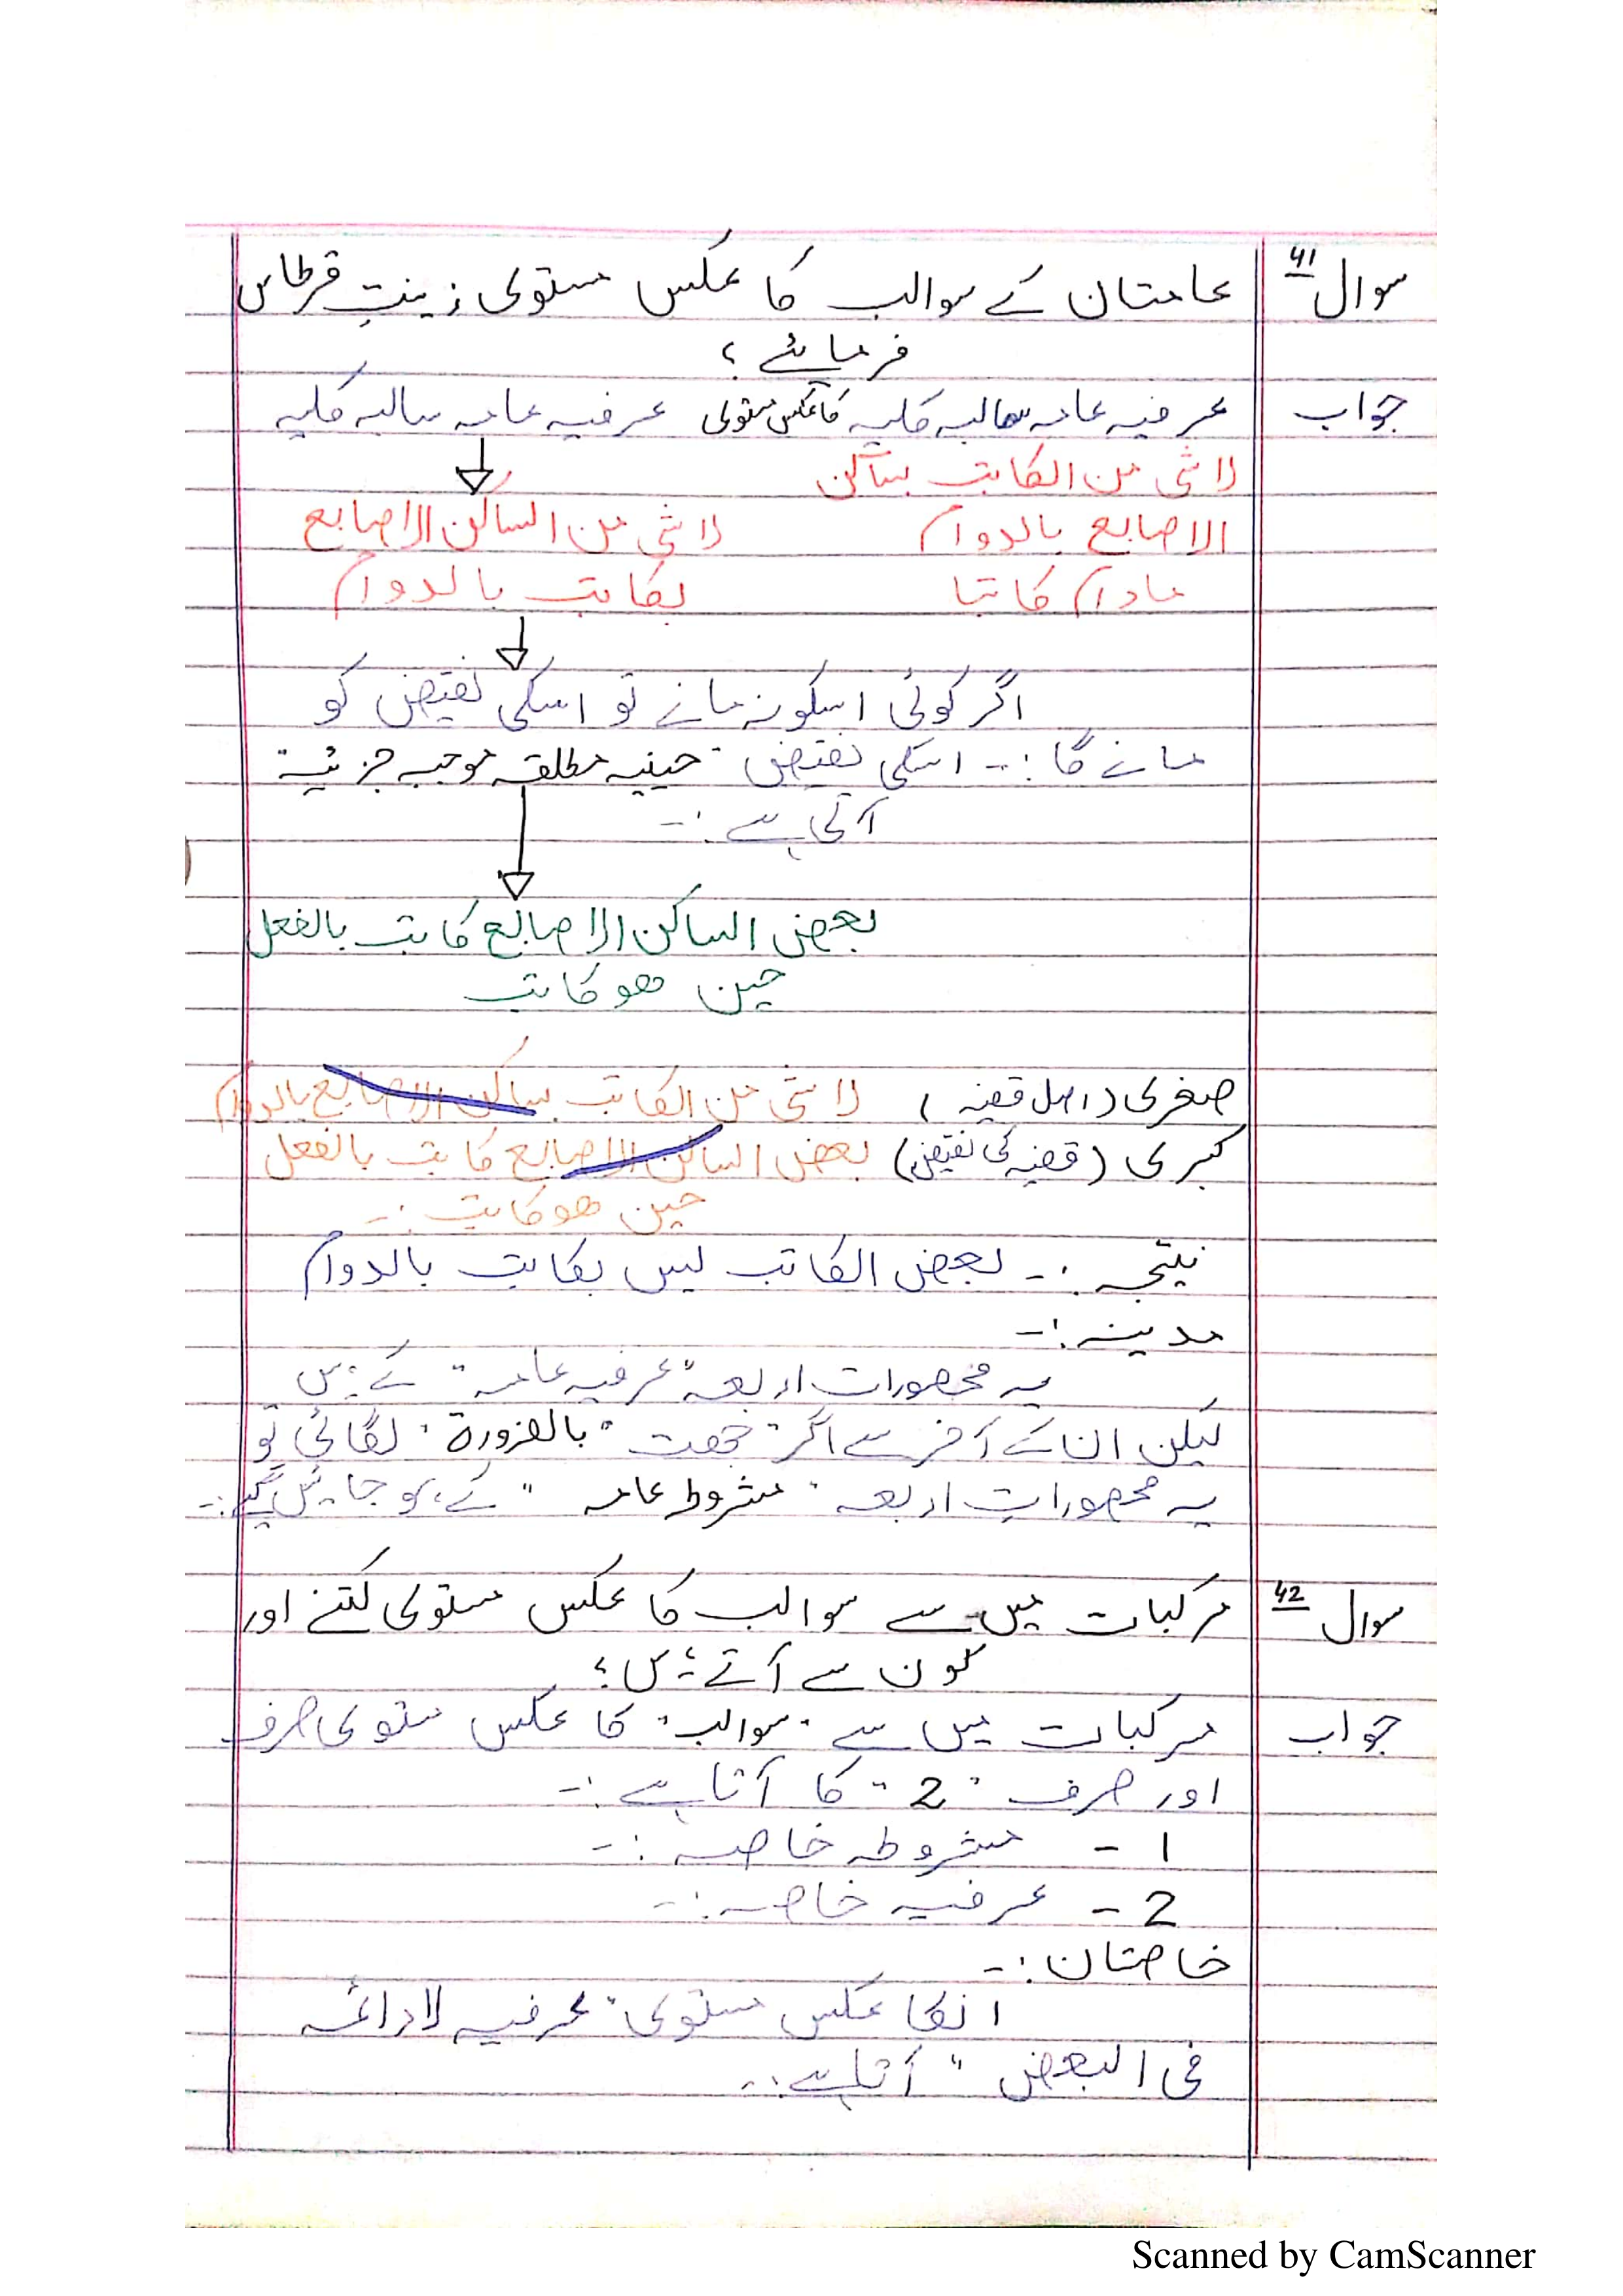 سوال 41 عامتان کے سوالب کا عکس مستوی زینتِ قرطاس
فرمائے ؟
جواب عرفیہ عامہ سالبہ کلیہ کا عکس مستوی عرفیہ عامہ سالبہ کلیہ
لا شئ من الکاتب بساکن
الاصابع بالدوام لا شئ من الساکن الاصابع
مادام کاتبا بکاتب بالدوام
اگر کوئی اسکو نہ مانے تو اسکی نقیض کو
مانے گا :- اسکی نقیض "حینیہ مطلقہ موجبہ جزئیہ"
آتی ہے :-
بعض الساکن الاصابع کاتب بالفعل
حین ھو کاتب
صغری (اصل قضیہ) لا شئ من الکاتب بساکن الاصابع بالدوام
کبری (قضیہ کی نقیض) بعض الساکن الاصابع کاتب بالفعل
حین ھو کاتب :-
نتیجہ :- بعض الکاتب لیس بکاتب بالدوام
مدینہ :-
یہ محصورات اربعہ "عرفیہ عامہ" کے ہیں
لیکن ان کے آخر سے اگر جھت "بالضرورة" لگائی تو
یہ محصوراتِ اربعہ "مشروط عامہ" کے ہو جائیں گے :-
سوال 42 مرکبات میں سے سوالب کا عکس مستوی کتنے اور
کون سے آتے ہیں ؟
جواب مرکبات میں سے "سوالب" کا عکس مستوی صرف
اور صرف "2" کا آتا ہے :-
1 - مشروطہ خاصہ :-
2 - عرفیہ خاصہ :-
خاصتان :-
انکا عکس مستوی "عرفیہ لادائمہ
فی البعض" آتا ہے :-
Scanned by CamScanner